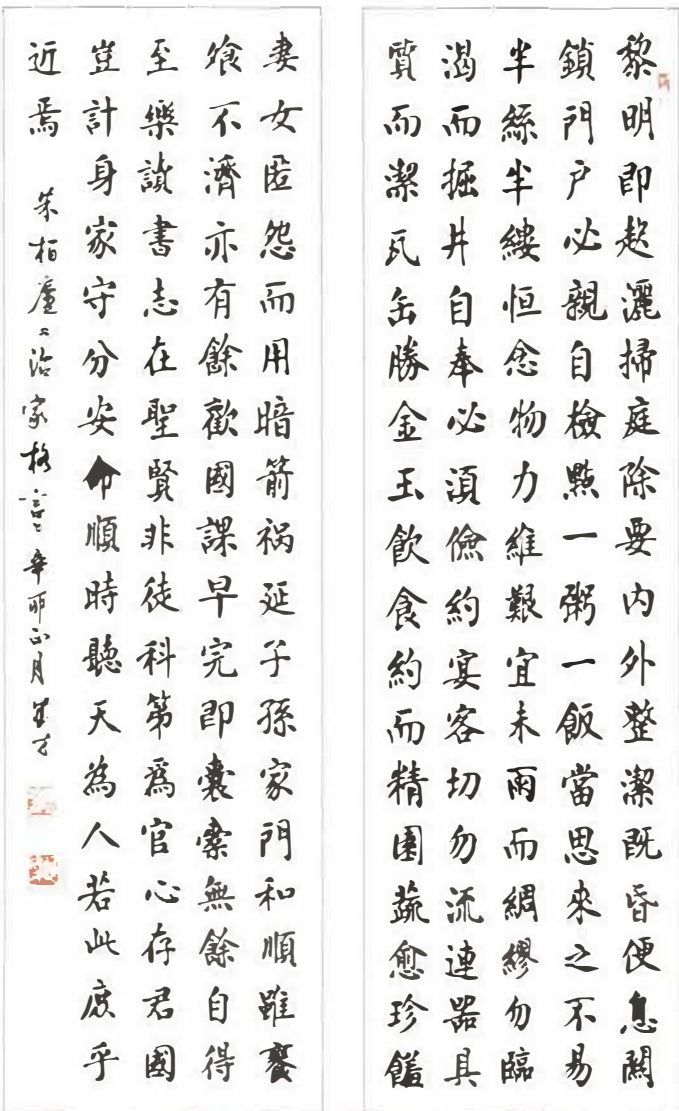 黎明即起灑掃庭除要内外整潔既昏便息關
鎖門户必親自檢點一粥一飯當思來之不易
半絲半縷恒念物力維艱宜未雨而綢繆勿臨
渴而掘井自奉必須儉約宴客切勿流連器具
質而潔瓦缶勝金玉飲食約而精園蔬愈珍饈
妻女匿怨而用暗箭祸延子孫家門和順雖饔
飧不濟亦有餘歡國課早完即囊橐無餘自得
至樂讀書志在聖賢非徒科第爲官心存君國
豈計身家守分安命順時聽天為人若此庶乎
近焉
朱柏廬治家格言辛卯正月